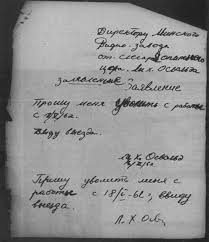 Директору Минского
Радио-завода
от слесаря
цеха. Ли. Х. Освальд
заявление Заявление
Прошу меня уволить с работы
с
Ввиду выезда.
Ли Х. Освальд
Прошу уволить меня с
работы с 18/V-62, ввиду
выезда.
Л. Х. Осв.